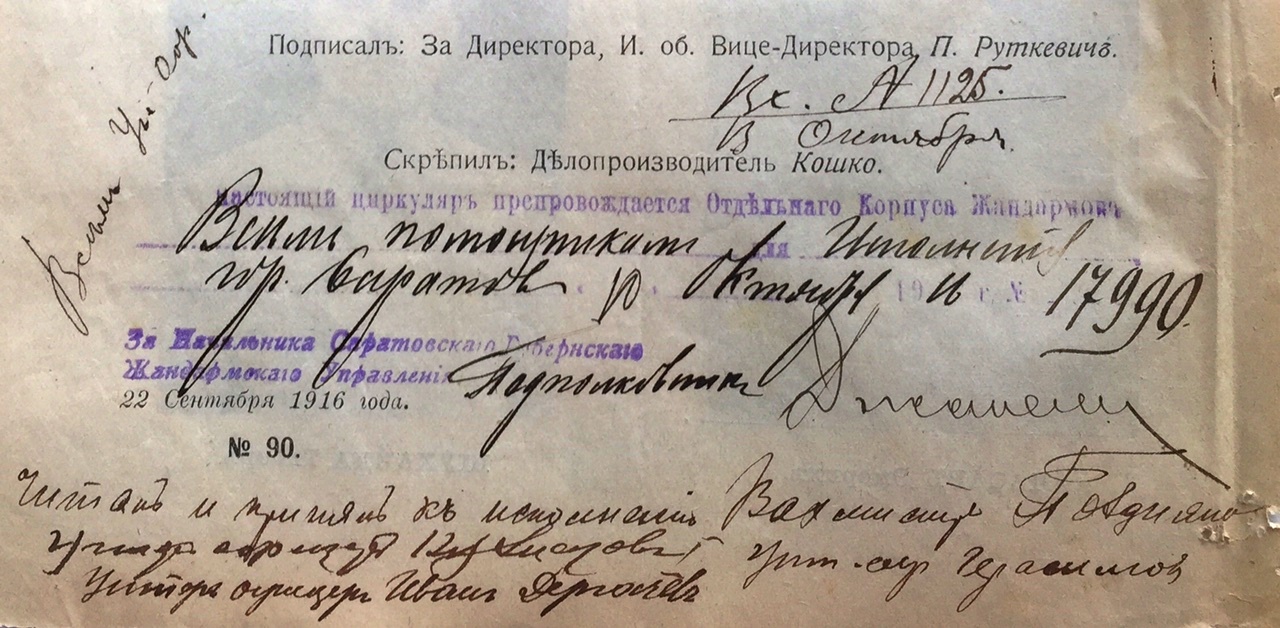 Подписалъ: За Директора, И. об. Вице-Директора, П. Руткевичъ.
Вх. № 1125.
Октября.
Скрѣпилъ: Дѣлопроизводитель Кошко.
Всѣмъ Ун-Оф.
Настоящій циркуляръ препровождается Отдѣльнаго Корпуса Жандармовъ
Всѣмъ помощникамъ для
гор. Саратовъ Октября 1916 г. № 17990.
За Начальника Саратовскаго Губернскаго
Жандармскаго Управленія Подполковникъ
22 Сентября 1916 года.
№ 90.
Читалъ и принялъ къ исполненію Вахмистръ
Унт. оф. Герасимов
Унтеръ офицеръ Иванъ Дергачевъ